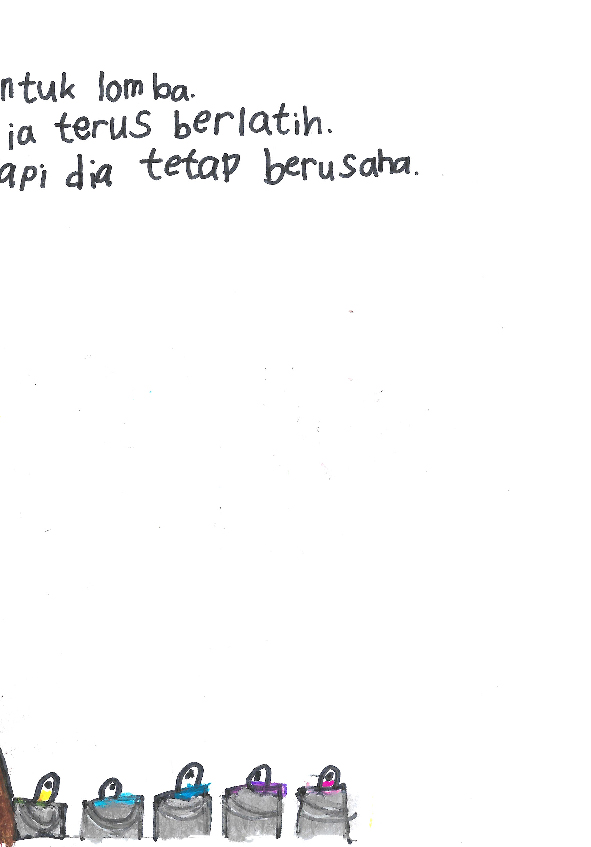 ntuk lomba.
ia terus berlatih.
api dia tetap berusaha.